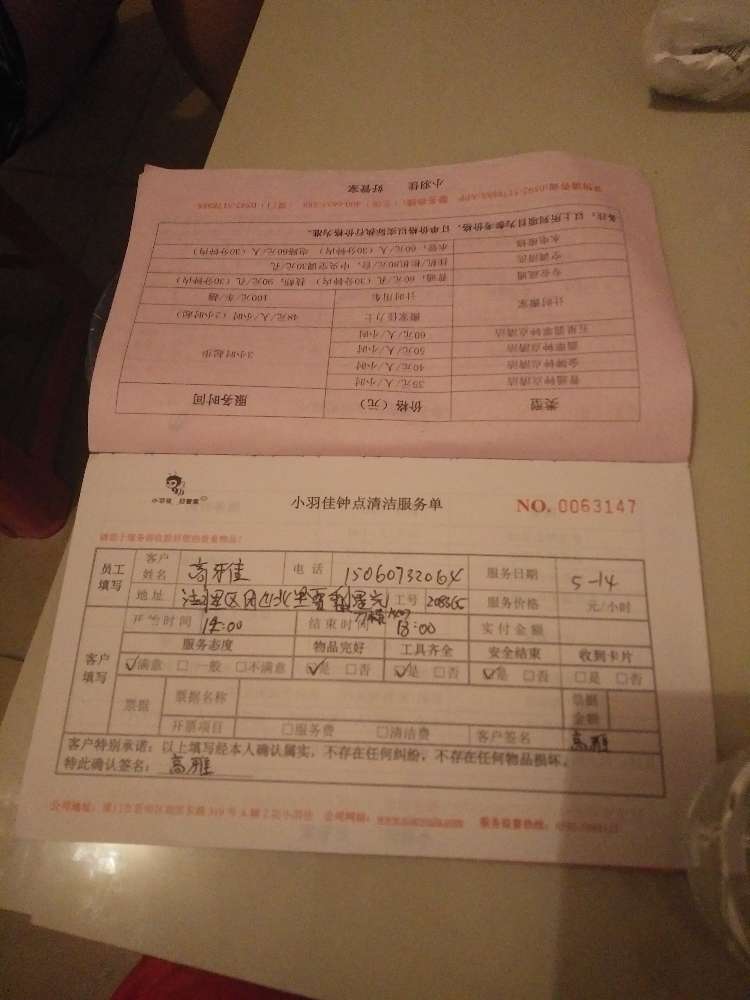 小羽佳 好管家
备注:以上所列项目为参考价格,订单价格以实际执行价格为准。
水电维修 水管,60元/人(30分钟内) 电路60元/人(30分钟内)
空调清洗 挂机/柜机80元/台,中央空调30元/孔
专业疏通 普通,60元/孔(30分钟内) 技师,90元/孔(30分钟内)
计时搬家 搬家佳力士 48元/人/小时(2小时起)
计时用车 100元/车/趟
五星翡翠钟点清洁 60元/人/小时
翡翠钟点清洁 50元/人/小时 3小时起步
金牌钟点清洁 40元/人/小时
普通钟点清洁 35元/人/小时
类型 价格(元) 服务时间
小羽佳 好管家
小羽佳钟点清洁服务单
NO. 0063147
员工填写 客户姓名 高雅佳 电话 15060732064 服务日期 5-14
地址 工号 208365 服务价格 元/小时
开始时间 14:00 结束时间 18:00 实付金额
客户填写 服务态度 物品完好 工具齐全 安全结束 收到卡片
√满意 □一般 □不满意 √是 □否 √是 □否 √是 □否 □是 □否
票据 票据名称 票据金额
开票项目 □服务费 □清洁费 客户签名 高雅
客户特别承诺:以上填写经本人确认属实,不存在任何纠纷,不存在任何物品损坏。
特此确认签名: 高雅